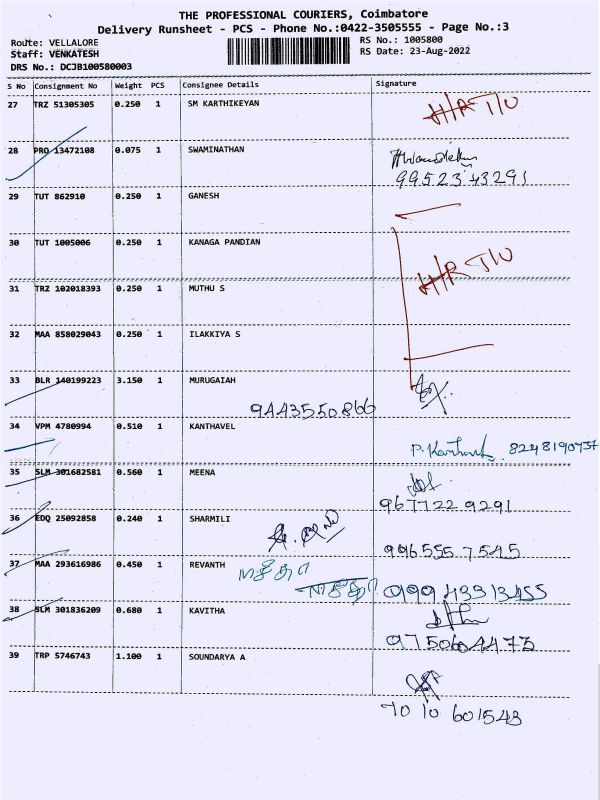 THE PROFESSIONAL COURIERS, Coimbatore
Delivery Runsheet - PCS - Phone No.:0422-3505555 - Page No.:3
Route: VELLALORE
RS No.: 1005800
Staff: VENKATESH
RS Date: 23-Aug-2022
DRS No.: DCJB100580003
S No Consignment No Weight PCS Consignee Details Signature
27 TRZ 51305305 0.250 1 SM KARTHIKEYAN
28 PRO 13472108 0.075 1 SWAMINATHAN
9952343291
29 TUT 862910 0.250 1 GANESH
30 TUT 1005006 0.250 1 KANAGA PANDIAN
31 TRZ 102018393 0.250 1 MUTHU S
32 MAA 858029043 0.250 1 ILAKKIYA S
33 BLR 140199223 3.150 1 MURUGAIAH
9443550866
34 VPM 4780994 0.510 1 KANTHAVEL
8248190737
35 SLM 301682581 0.560 1 MEENA
9677229291
36 EDQ 25092858 0.240 1 SHARMILI
9965557545
37 MAA 293616986 0.450 1 REVANTH
38 SLM 301836209 0.680 1 KAVITHA
39 TRP 5746743 1.100 1 SOUNDARYA A
7010601543